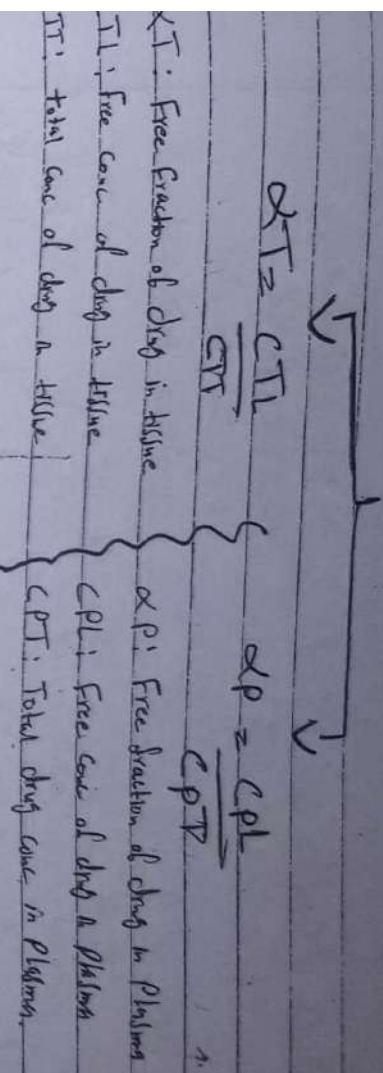 αT = CTL
CTT
αT : Free fraction of drug in tissue
TL : free conc of drug in tissue
TT : total conc of drug n tissue
αp = CpL
CpT
αp : Free fraction of drug in plasma
CPL : Free conc of drug n plasma
CPT : Total drug conc in plasma.